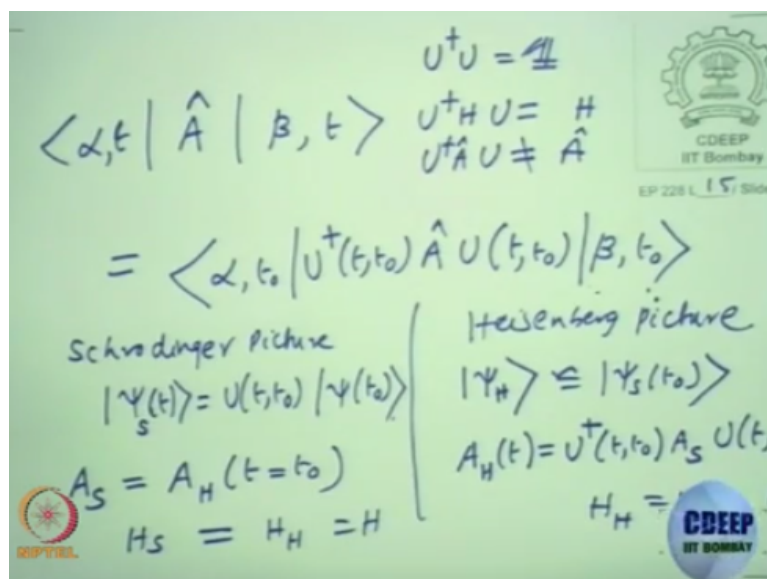 U†U = 𝟙
⟨α,t | Â | β, t⟩ U†H U = H
U†Â U ≠ Â
CDEEP
IIT Bombay
EP 228 L 15 / Slide
= ⟨α, t₀ | U†(t,t₀) Â U(t,t₀) | β, t₀⟩
Schrodinger Picture
|Ψ_S(t)⟩ = U(t,t₀) |Ψ(t₀)⟩
A_S = A_H (t=t₀)
H_S = H_H = H
Heisenberg picture
|Ψ_H⟩ = |Ψ_S(t₀)⟩
A_H(t) = U†(t,t₀) A_S U(t,
H_H =
NPTEL
CDEEP
IIT BOMBAY